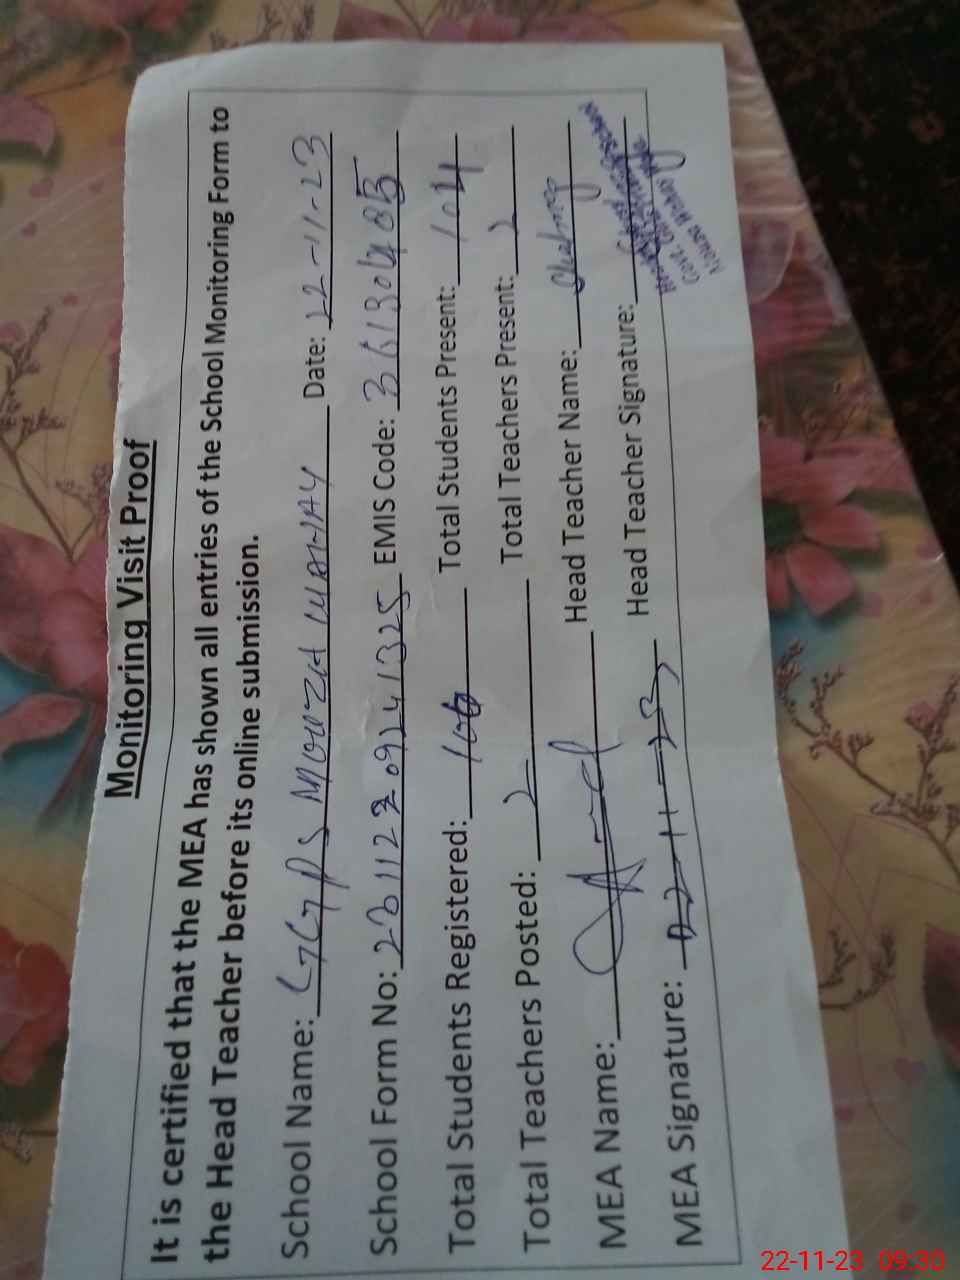 Monitoring Visit Proof
It is certified that the MEA has shown all entries of the School Monitoring Form to
the Head Teacher before its online submission.
School Name: GGPS MOUZA MAHAY Date: 22-11-23
School Form No: EMIS Code:
Total Students Registered: Total Students Present: 104
Total Teachers Posted: 2 Total Teachers Present: 2
MEA Name: Head Teacher Name:
MEA Signature: 22-11-23 Head Teacher Signature:
22-11-23 09:30